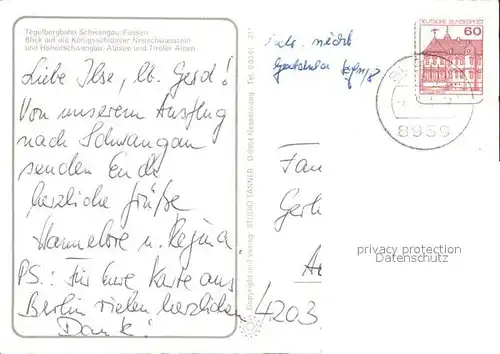 Tegelbergbahn Schwangau/Füssen
Blick auf die Königsschlösser Neuschwanstein
und Hohenschwangau, Alpsee und Tiroler Alpen
Liebe Ilse, lb. Gerd!
Von unserem Ausflug
nach Schwangau
senden Euch
herzliche Grüße
Hannelore u. Regina.
PS.: Für Eure Karte aus
Berlin vielen herzlichen
Dank!
Copyright und Verlag: STUDIO TANNER D-8964 Nesselwang Tel. 08361
nicht
DEUTSCHE BUNDESPOST
60
8959
Fam
Gerh
4203
privacy protection
Datenschutz